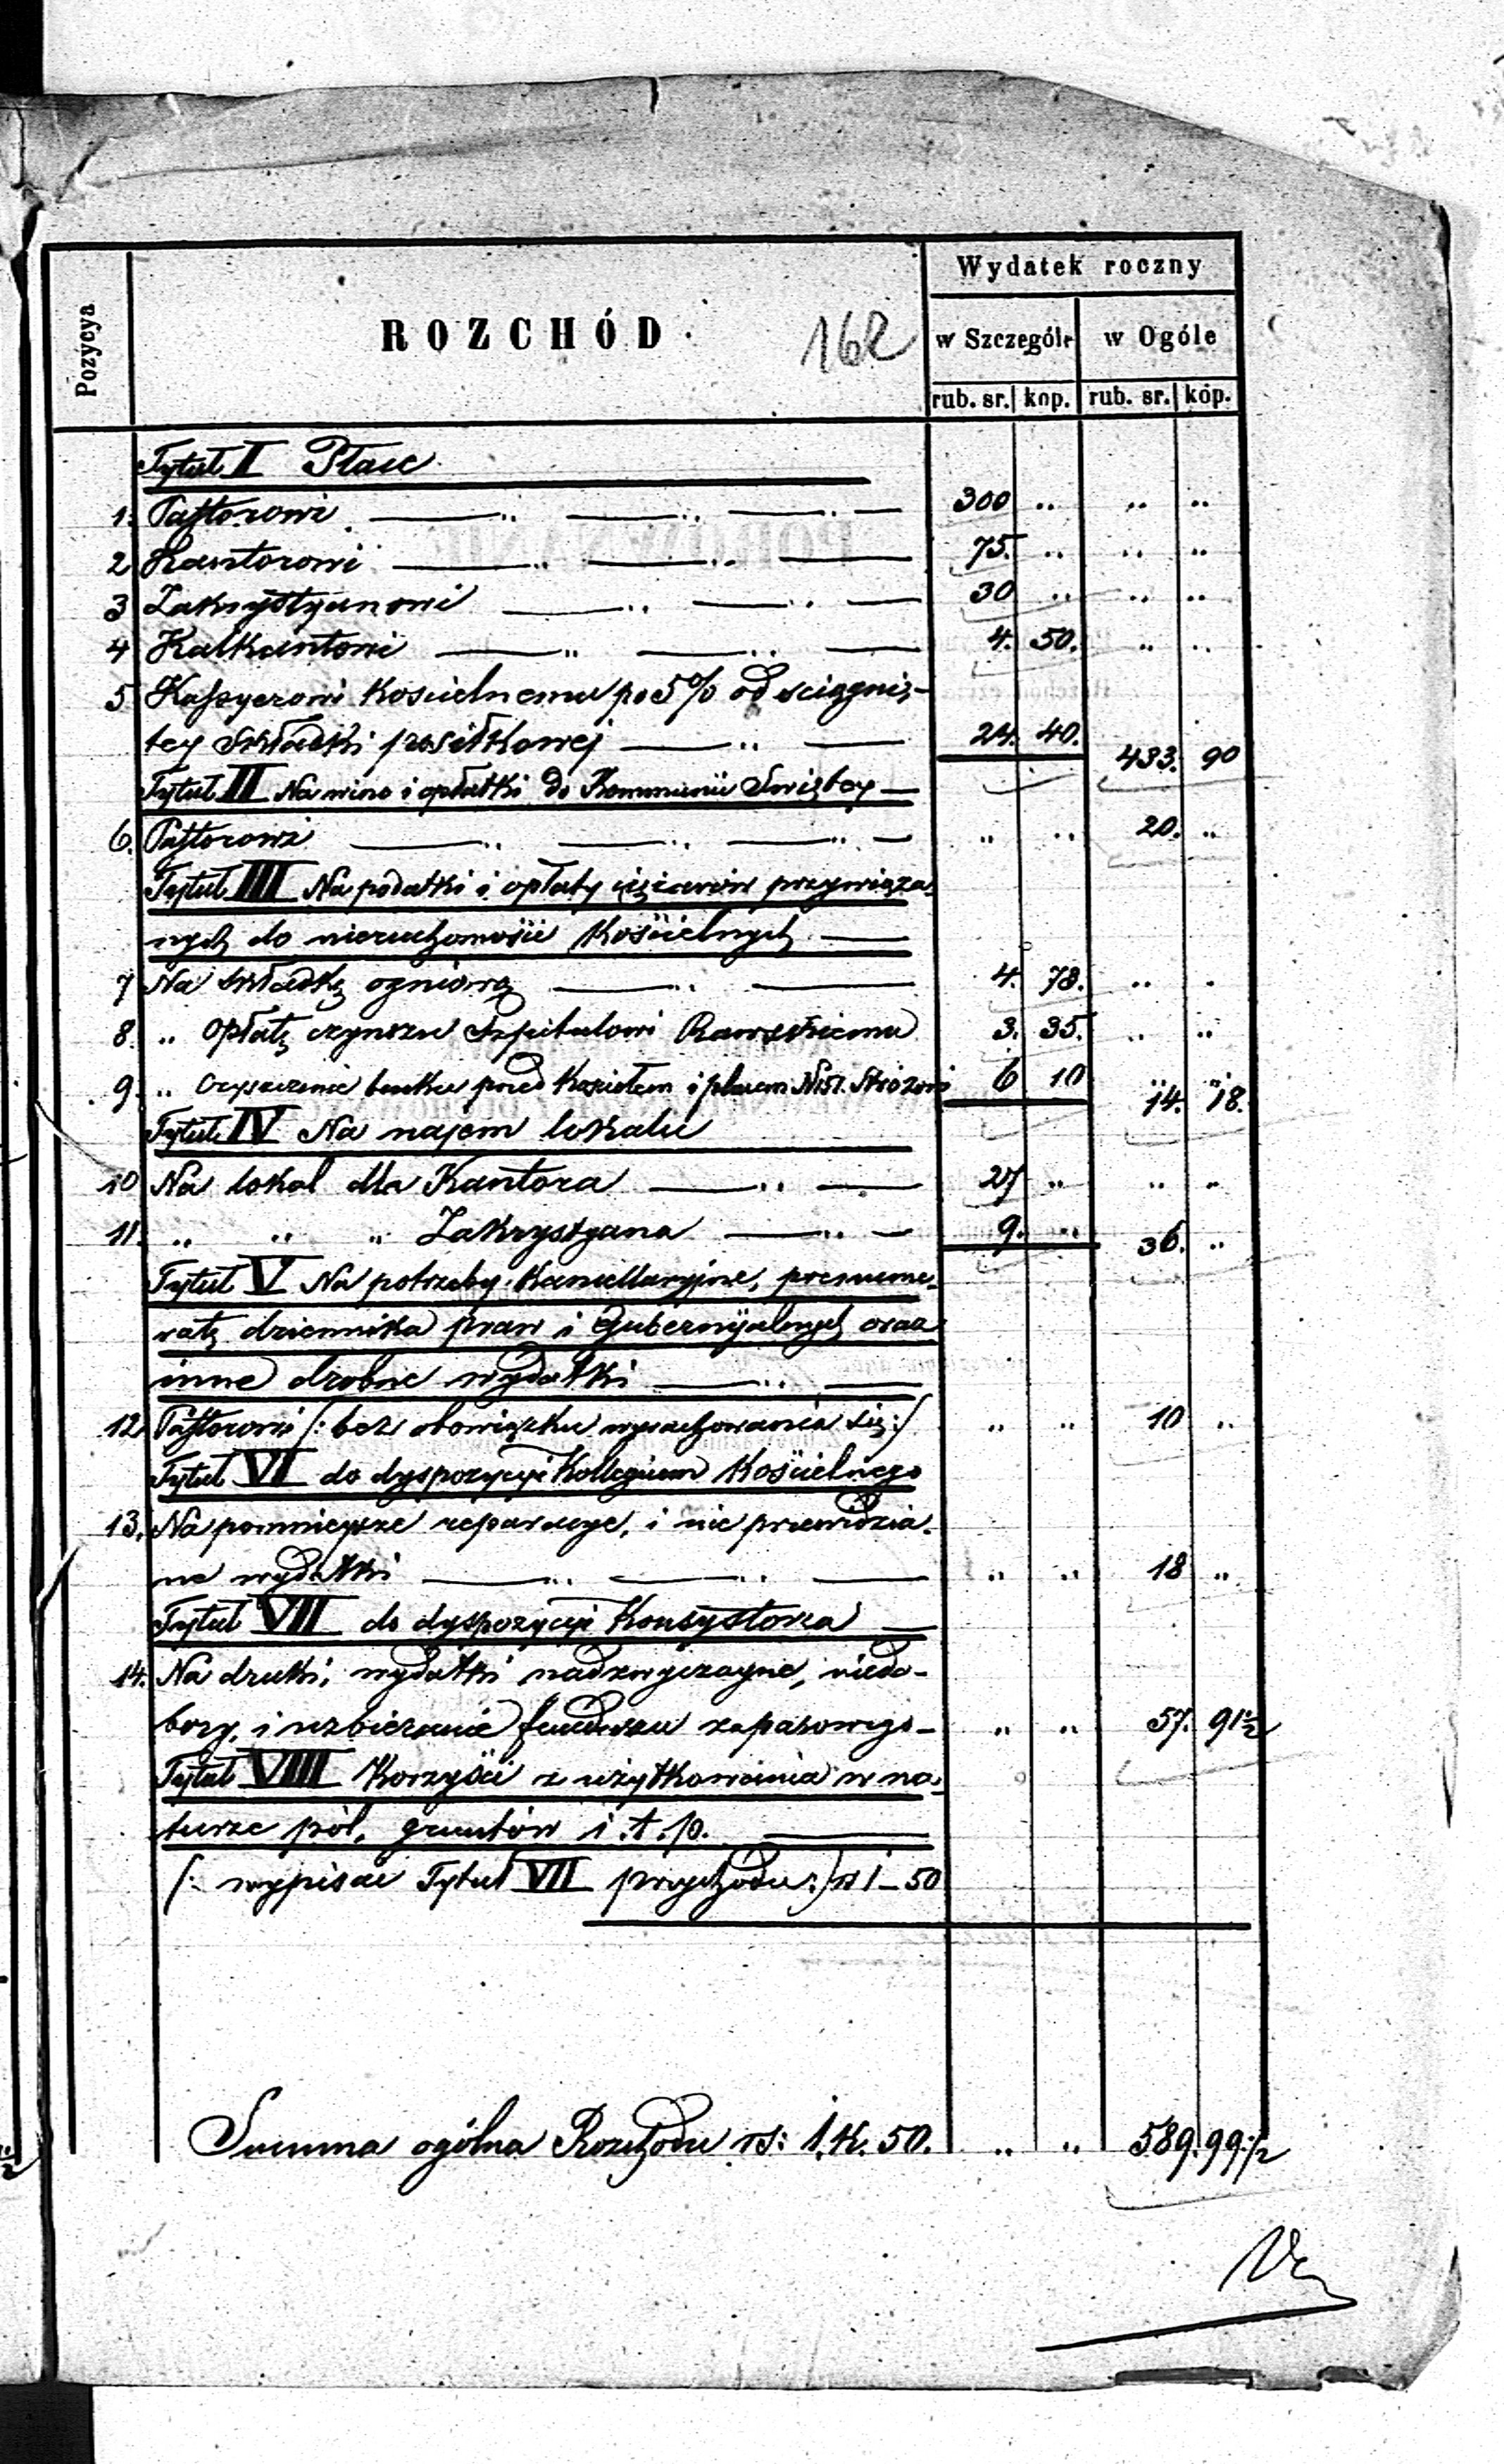 Wydatek roczny
Pozycya
ROZCHÓD.
162
w Szczególe
w Ogóle
rub. sr. kop. rub. sr. kop.
Tytuł I Płace
1. Pastorowi 300 .. .. ..
2 Kantorowi 75. .. .. ..
3 Zakrystyanowi 30 .. .. ..
4 Kalkantowi 4. 50. .. ..
5 Kassyerowi Kościelnemu po 5% od ściągnię-
tey składki posiłkowej 24. 40. 433. 90
Tytuł II Na wino i opłatki do Kommunii Świętey
6. Pastorowi .. .. 20. ..
Tytuł III Na podatki i opłaty ciężarów przywiąza-
nych do nieruchomości Kościelnych
7 Na składkę ogniową 4. 73. .. ..
8. .. Opłatę czynszu Szpitalowi Rawskiemu 3. 35. .. ..
9. .. Czyszczenie bruku przed Kościołem i placem N 151. Stróżowi 6 10 14. 18.
Tytuł IV Na najem lokalu
10 Na lokal dla Kantora 27 .. .. ..
11. .. .. .. Zakrystyana 9. .. 36. ..
Tytuł V Na potrzeby Kancellaryjne, prenume-
ratę dziennika praw i Gubernijalnych oraz
inne drobne wydatki
12. Pastorowi /: bez obowiązku wyrachowania się :/ .. .. 10 ..
Tytuł VI do dyspozycyi Kollegium Kościelnego
13. Na pomnieysze reparacye, i nie przewidzia-
ne wydatki .. .. 18 ..
Tytuł VII do dyspozycyi Konsystorza
14. Na druki, wydatki nadzwyczayne, niedo-
bory, i uzbieranie funduszu zapasowego .. .. 57. 91½
Tytuł VIII Korzyści z użytkowania w na-
turze pól, gruntów i.t.p.
/: wypisać Tytuł VII przychodu :/ rs 1-50
Summa ogólna Rozchodu rs: 1. K. 50. .. .. 589. 99½